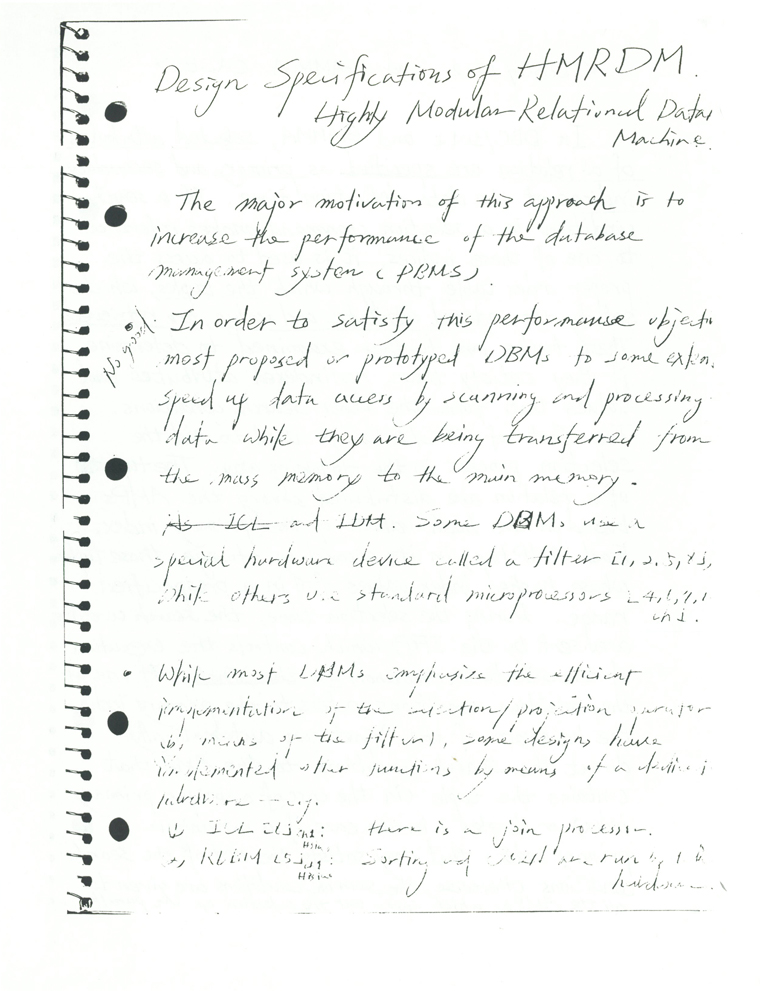 Design Specifications of HMRDM.
Highly Modular Relational Data
Machine.
The major motivation of this approach is to
increase the performance of the database
management system (DBMS)
No good.
In order to satisfy this performance objecti
most proposed or prototyped DBMs to some exten
speed up data access by scanning and processing
data while they are being transferred from
the mass memory to the main memory.
As ICL and IDM. Some DBMs use a
special hardware device called a filter
while others use standard microprocessors
While most DBMs emphasize the efficient
implementation of the selection/projection operator
by means of the filter), some designs have
implemented other functions by means of a device
e.g.
there is a join processor.
Sorting and are run
hardware.